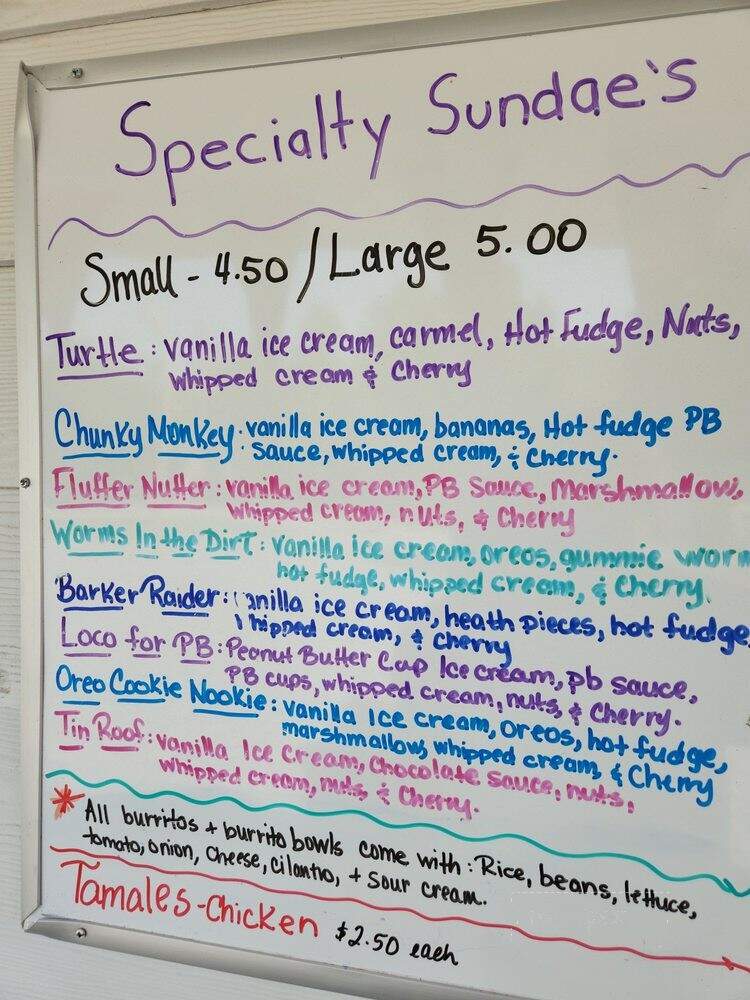 Specialty Sundae's
Small - 4.50 / Large 5.00
Turtle: vanilla ice cream, carmel, Hot Fudge, Nuts,
Whipped cream & Cherry
Chunky Monkey: vanilla ice cream, bananas, Hot fudge PB
sauce, whipped cream, & Cherry.
Fluffer Nutter: vanilla ice cream, PB Sauce, Marshmallow,
whipped cream, nuts, & Cherry
Worms In the Dirt: vanilla ice cream, oreos, gummie worm
hot fudge, whipped cream, & Cherry.
Barker Raider: vanilla ice cream, heath pieces, hot fudge,
whipped cream, & Cherry
Loco for PB: Peanut Butter Cup Ice cream, pb sauce,
PB cups, whipped cream, nuts, & Cherry.
Oreo Cookie Nookie: vanilla Ice cream, oreos, hot fudge,
marshmallow, whipped cream, & Cherry
Tin Roof: vanilla Ice Cream, Chocolate Sauce, nuts,
whipped cream, nuts, & Cherry.
* All burritos + burrito bowls come with: Rice, beans, lettuce,
tomato, onion, cheese, cilantro, + sour cream.
Tamales - Chicken $2.50 each